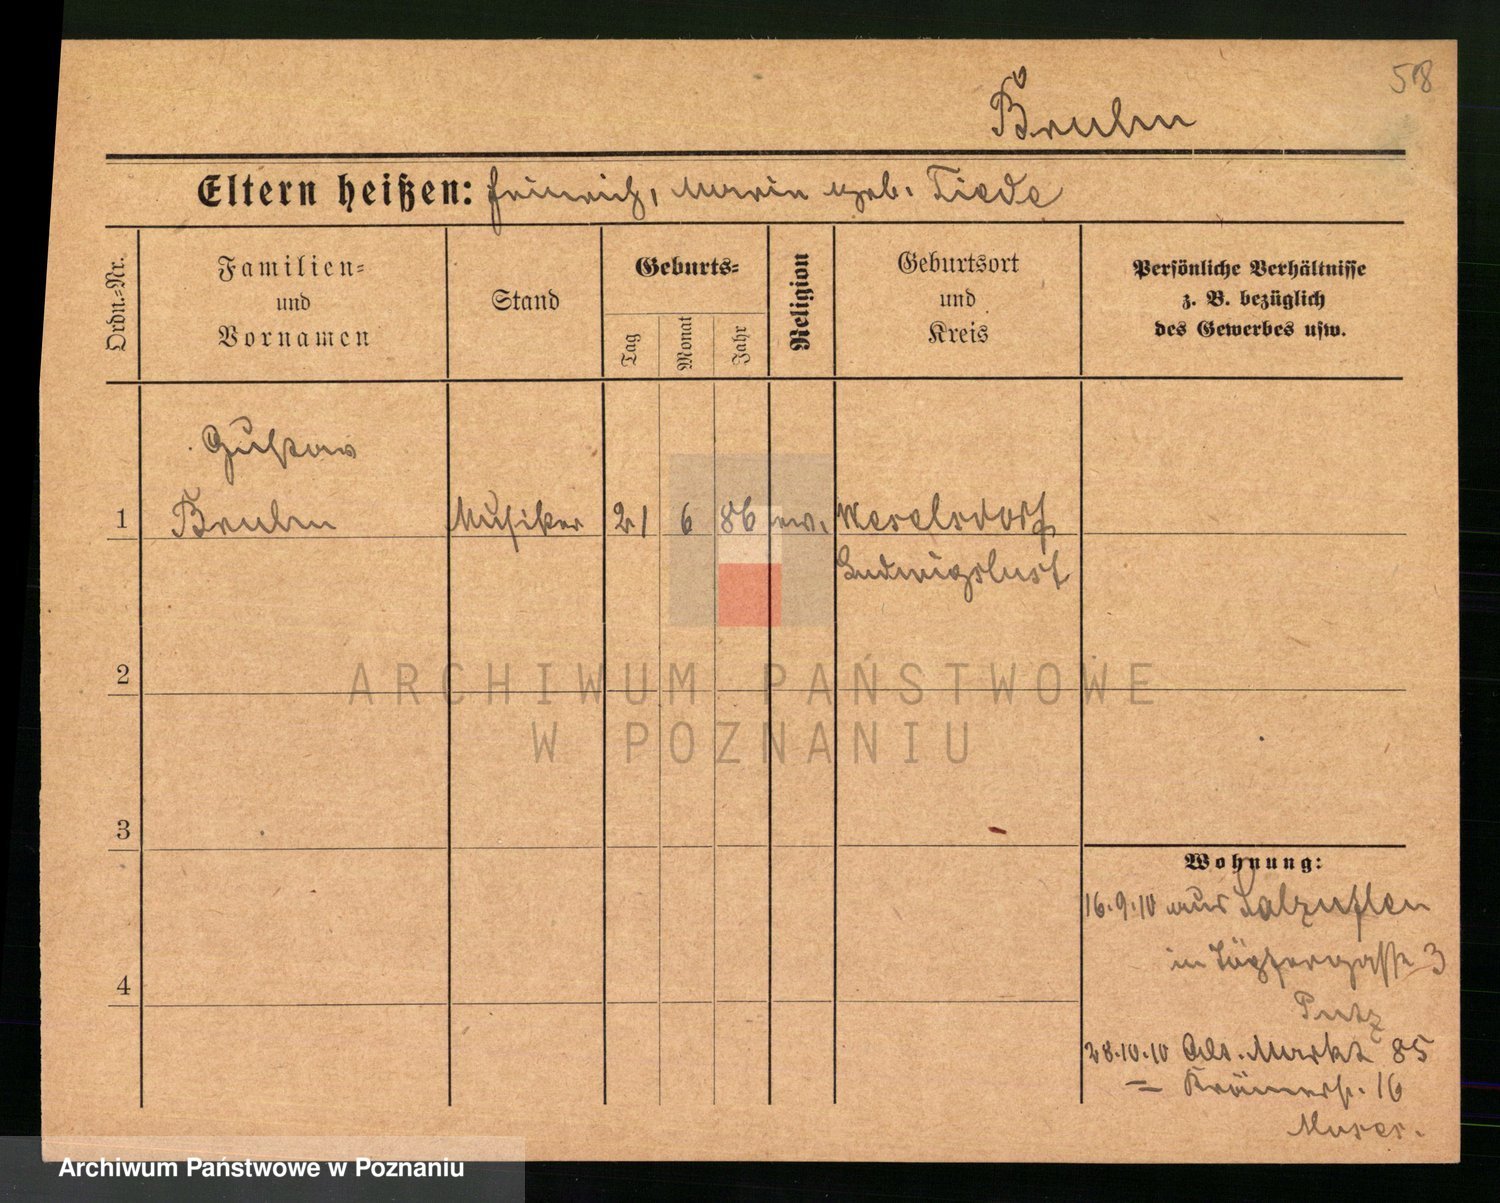 518
Bruhn
Eltern heißen: Heinrich, Marie geb. Tiede
Ordn.=Nr.
Familien=
und
Vornamen
Stand
Geburts=
Tag
Monat
Jahr
Religion
Geburtsort
und
Kreis
Persönliche Verhältnisse
z. B. bezüglich
des Gewerbes usw.
Gustav
1 Bruhn Musiker 21 6 86 ev.
Ludwigslust
2
3
4
Wohnung:
16.9.10 aus Salzuflen
in Töpfergasse 3
28.10.10 Alt. Markt 85
= Krämerstr. 16
ARCHIWUM PAŃSTWOWE
W POZNANIU
Archiwum Państwowe w Poznaniu